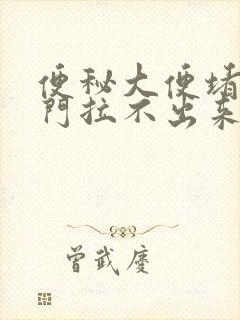 便秘大便堵
門拉不出来
曾武慶